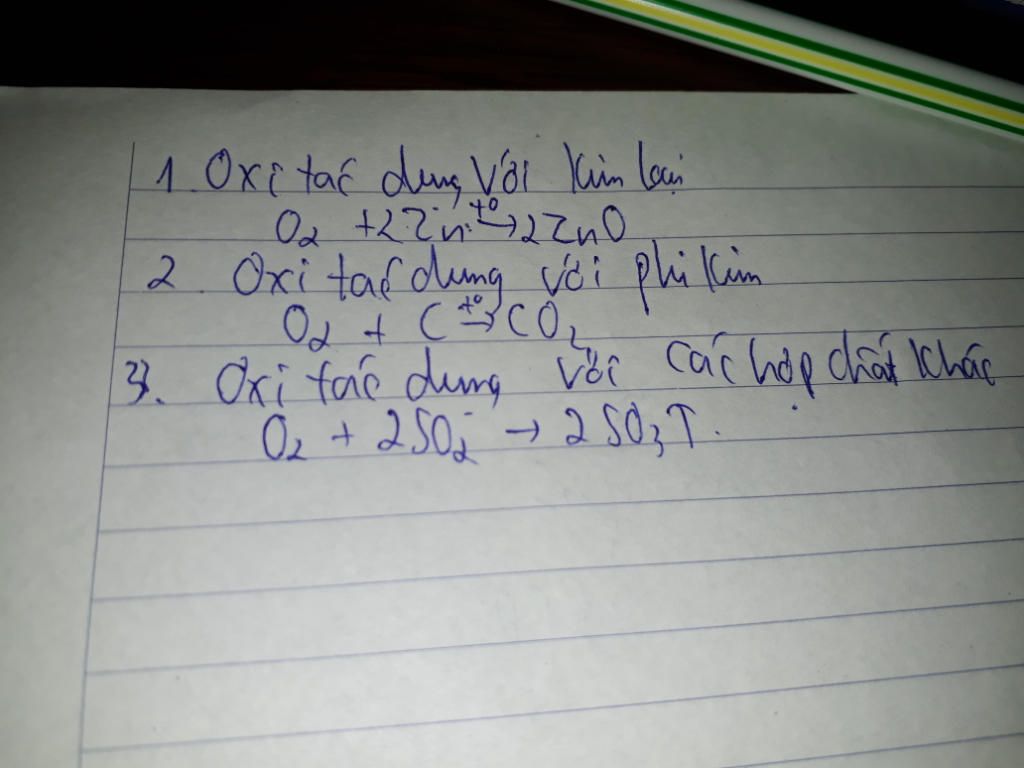 1. Oxi tác dụng với kim loại
O₂ + 2Zn t⁰→ 2ZnO
2. Oxi tác dụng với phi kim
O₂ + C t⁰→ CO₂
3. Oxi tác dụng với các hợp chất khác
O₂ + 2SO₂ → 2SO₃↑.